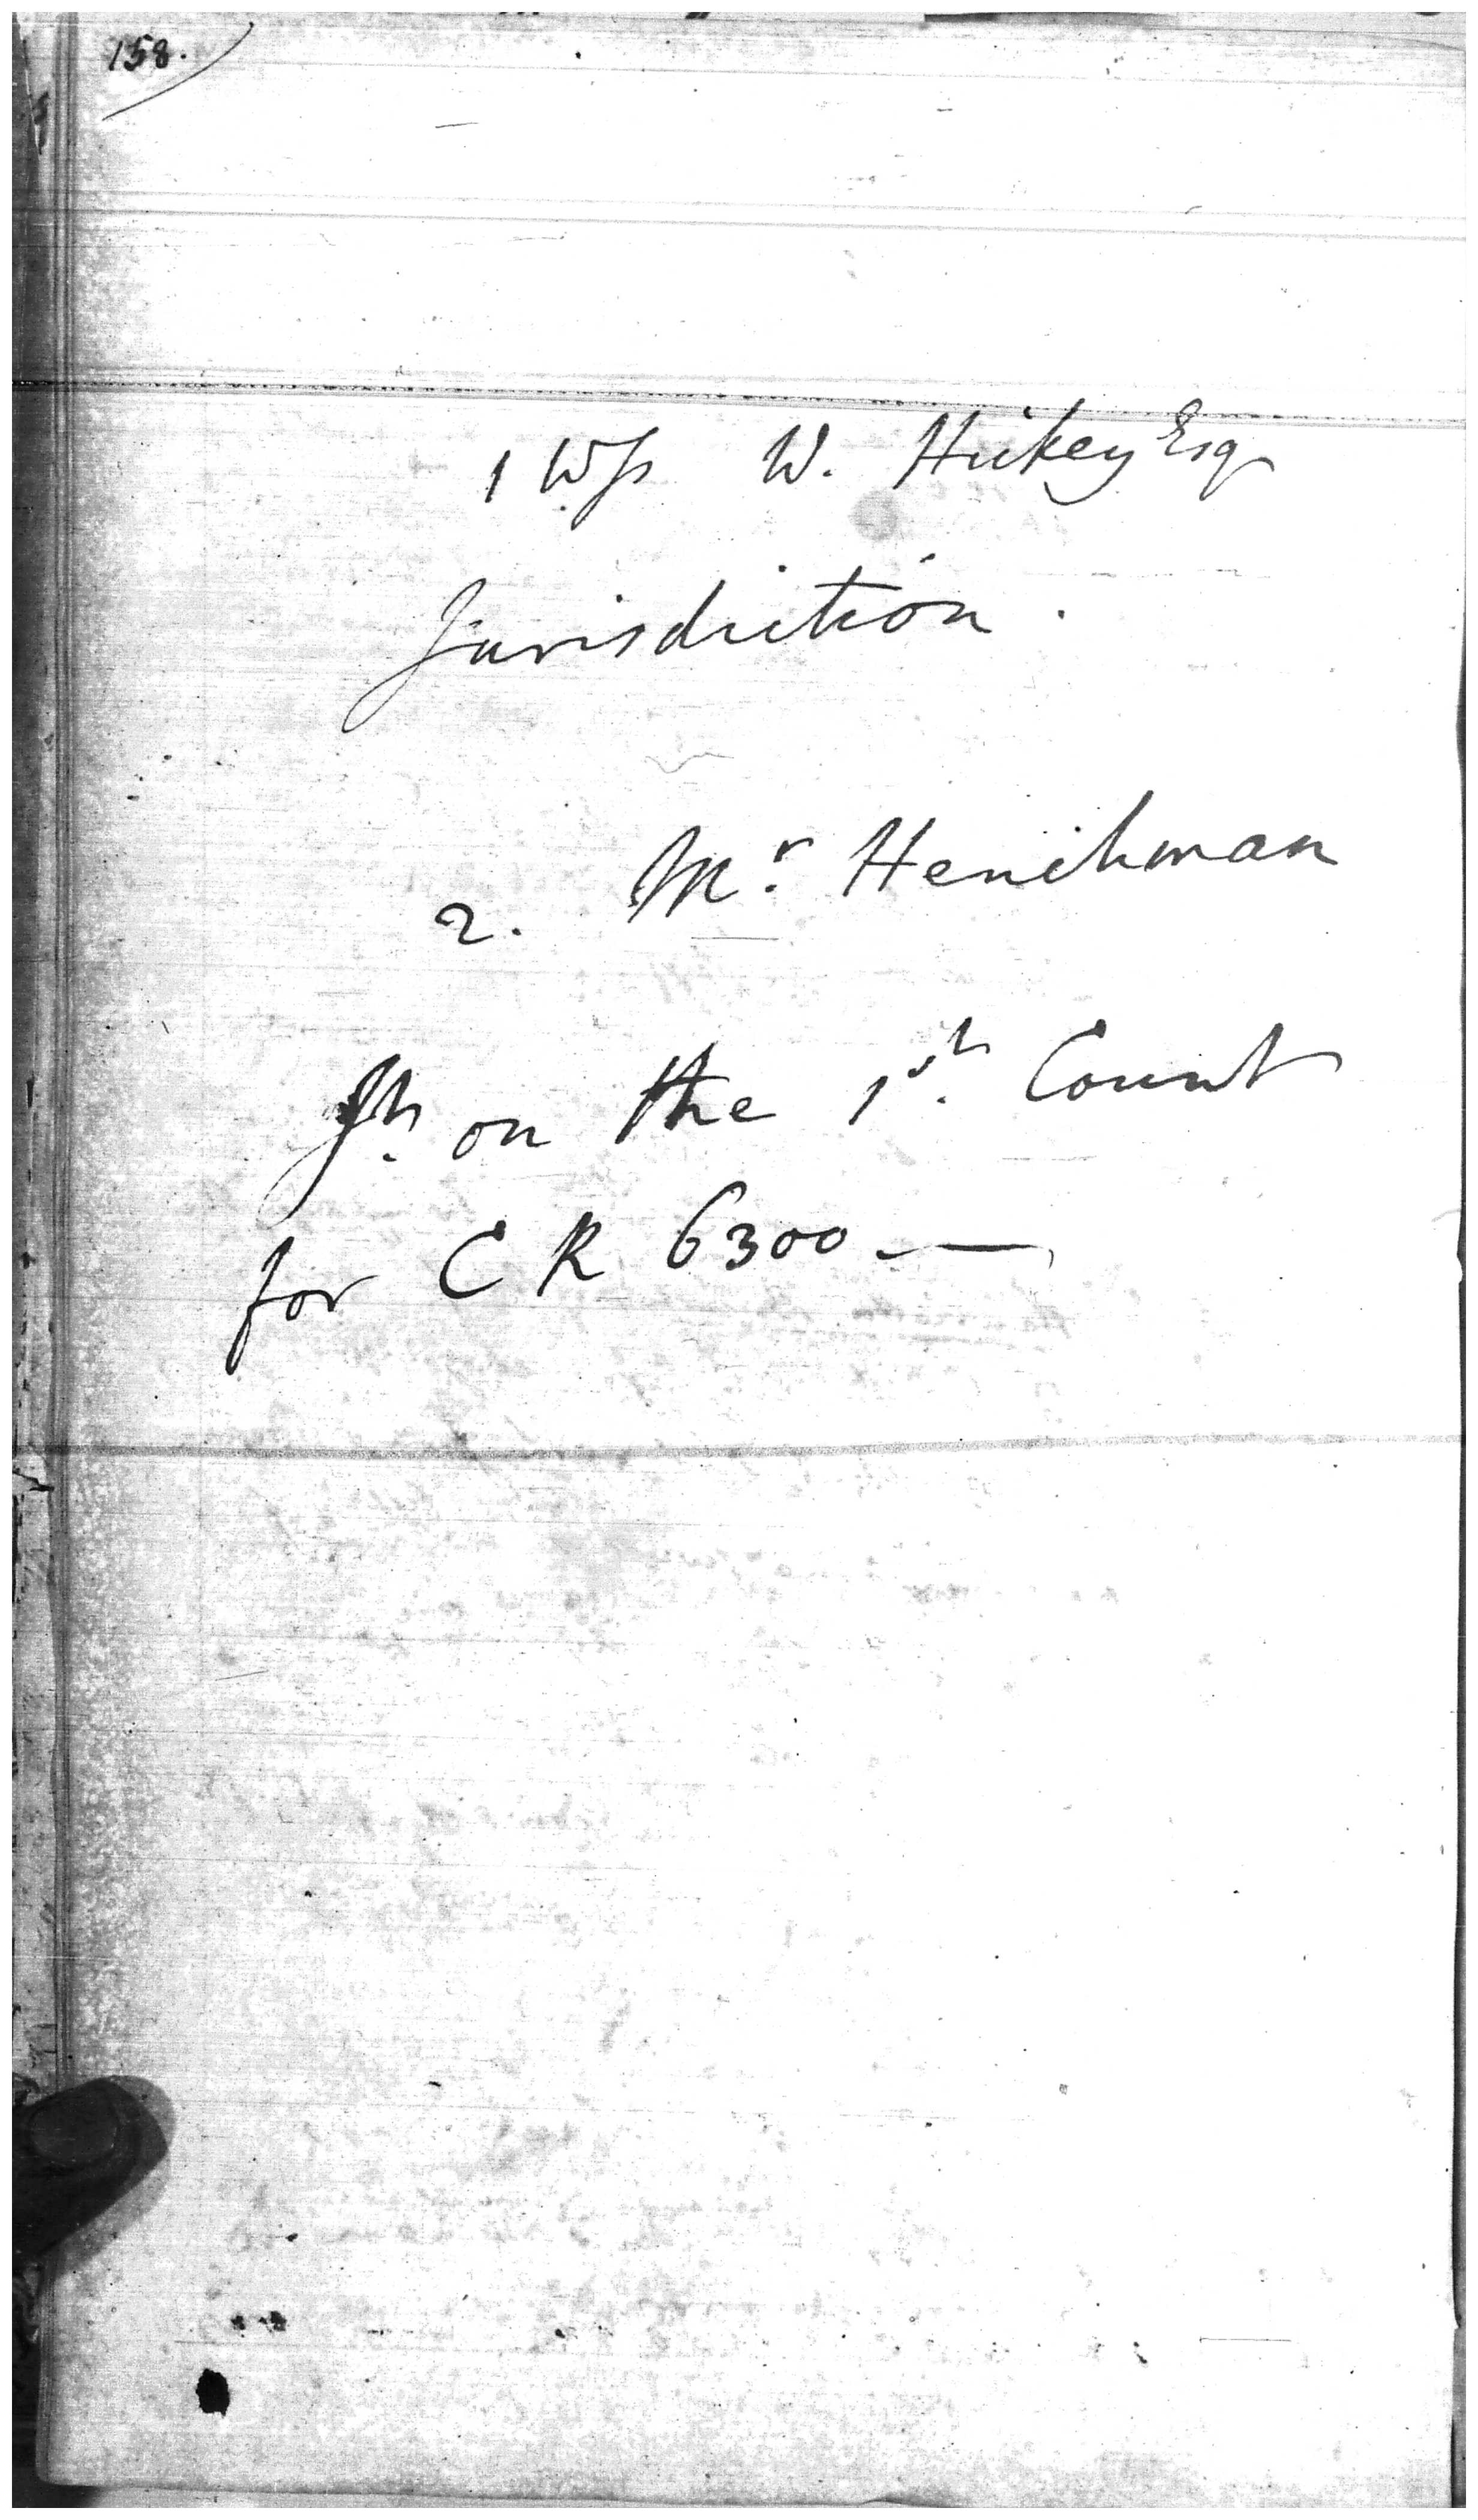 158.
1 Wss W. Hickey Esq
Jurisdiction.
2. Mr. Henchman
Jt. on the 1st. Count
for C R 6300 —